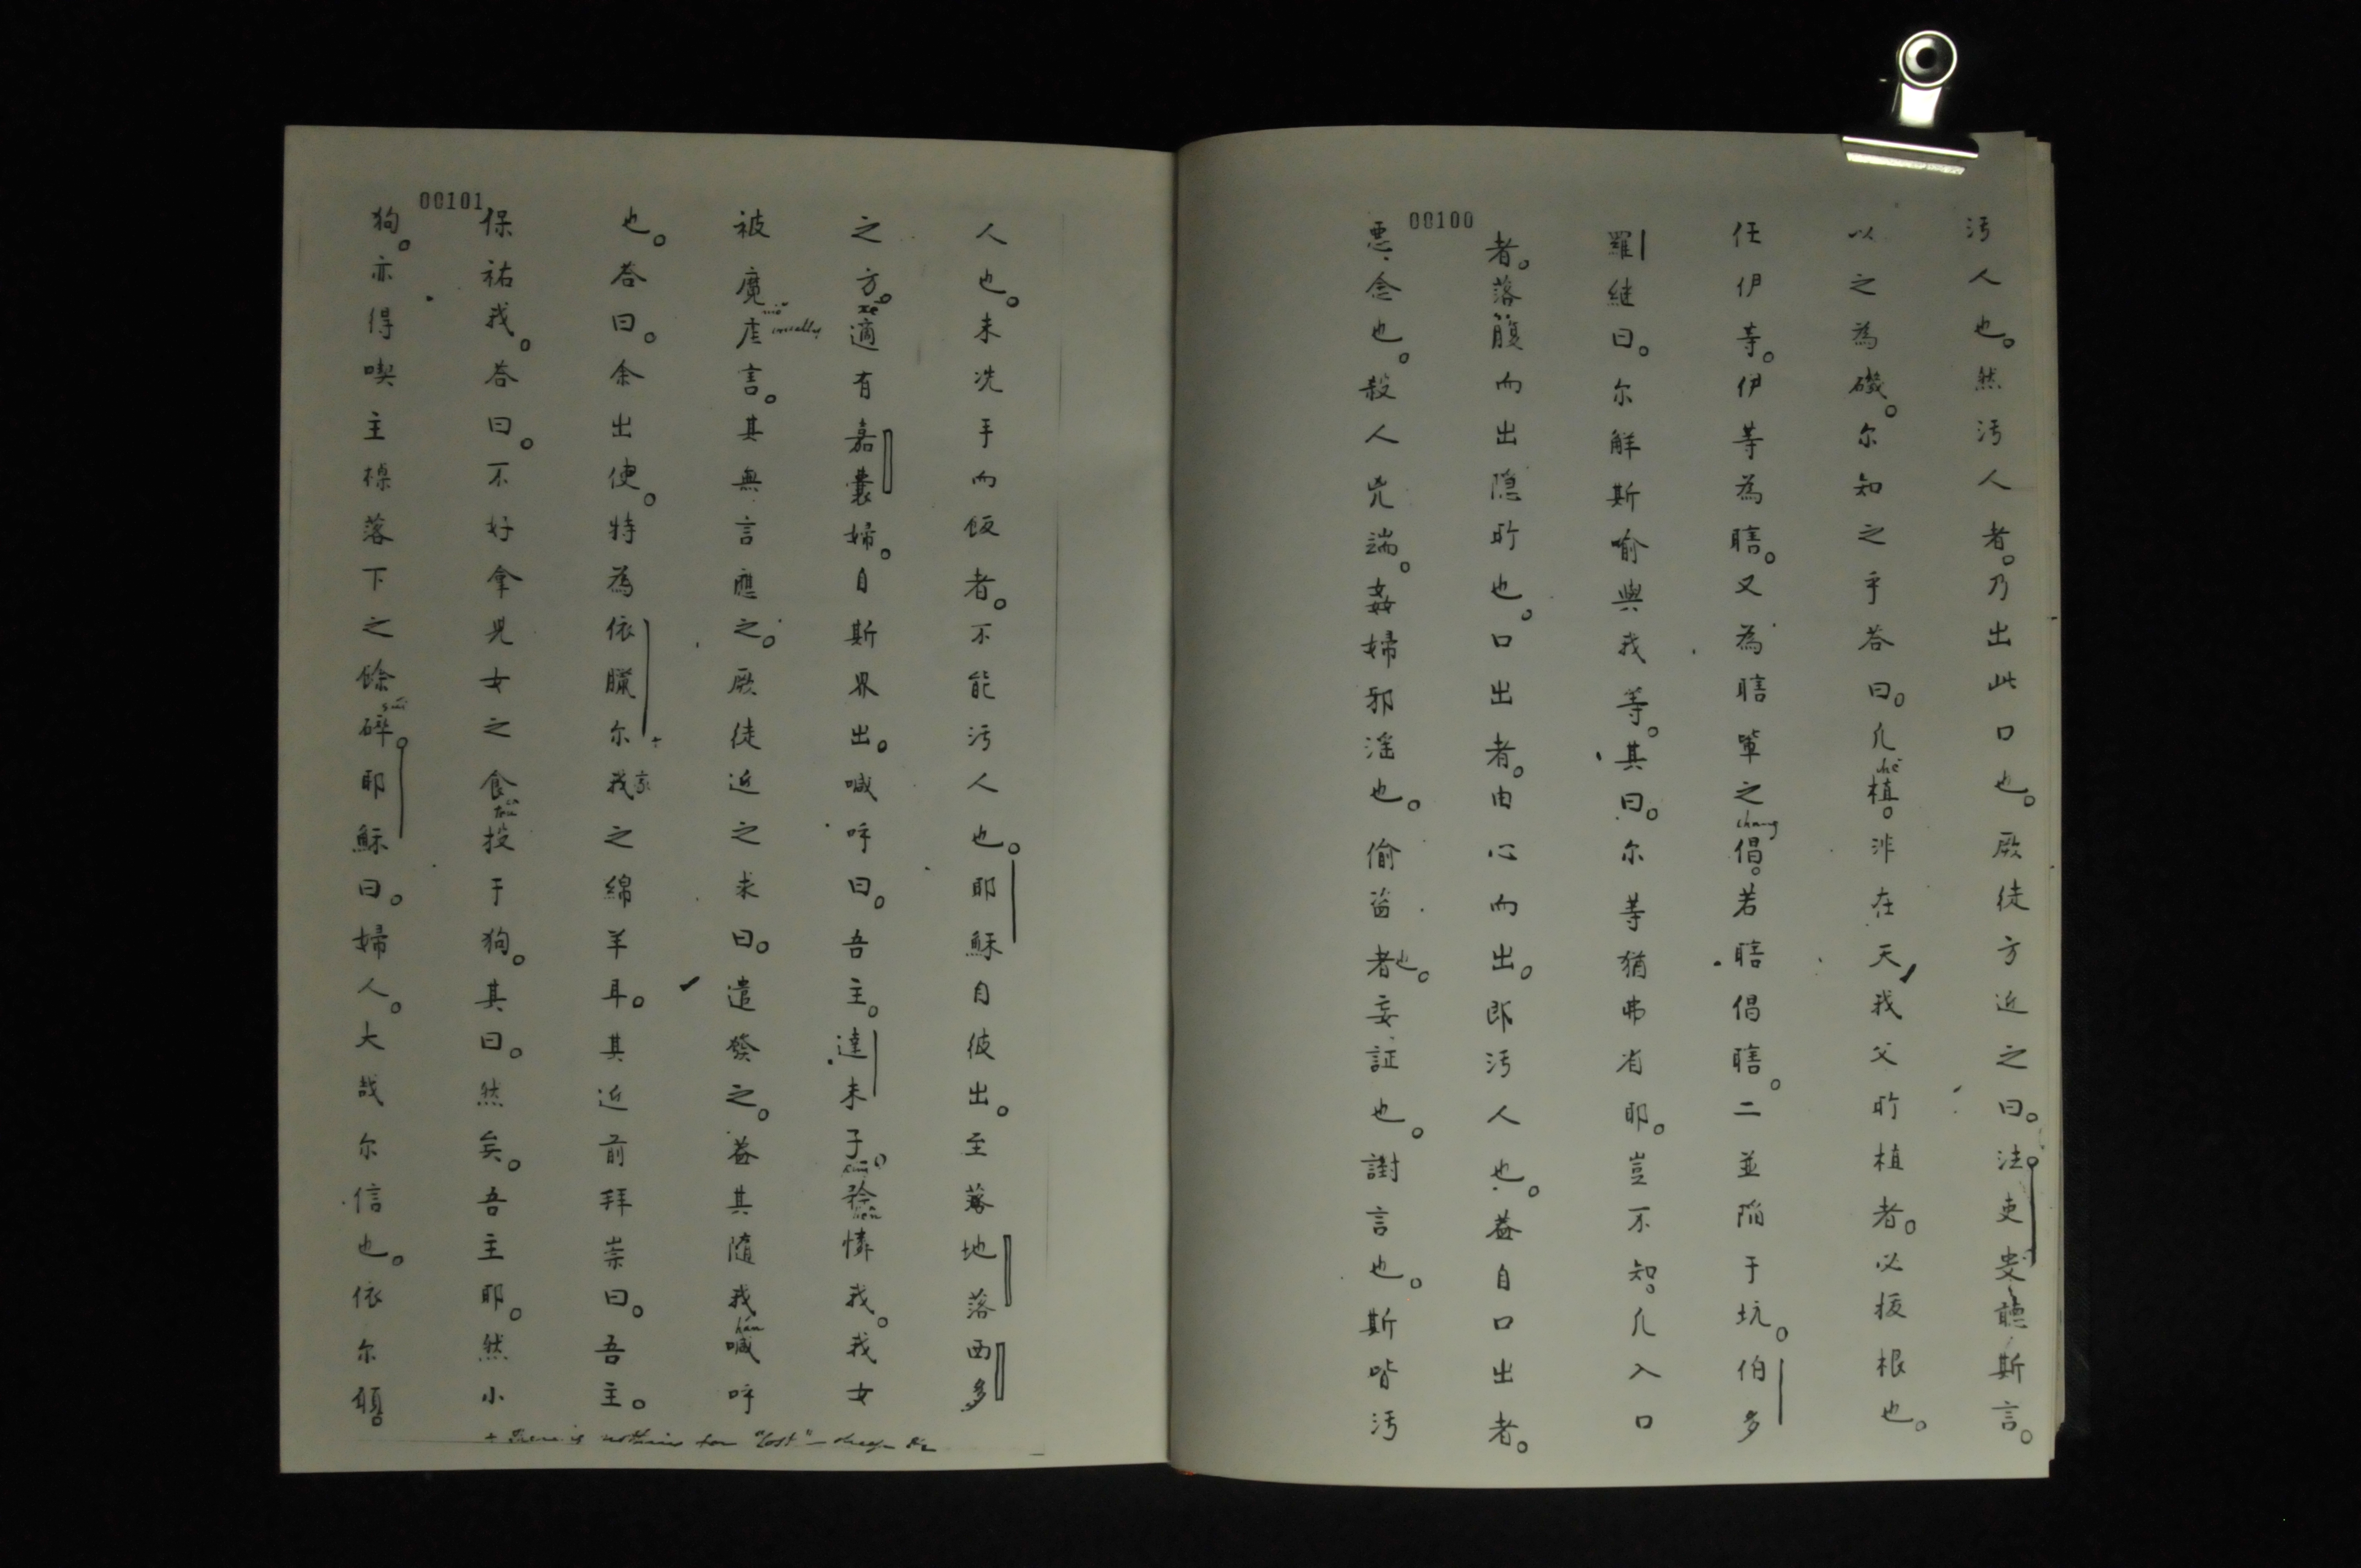 00100
汚人也。然汚人者。乃出此口也。厥徒方近之曰。法吏叟聽斯言。
以之為磯。尔知之乎荅曰。凡植。非在天我父所植者。必拔根也。
chě
任伊等。伊等為瞎。又為瞎輩之倡。若瞎倡瞎。二並陷于坑。伯多
chang
羅継曰。尔觧斯喻與我等。其曰。尔等猶弗省耶。豈不知。凡入口
者。落腹而出隠所也。口出者。由心而出。即汚人也。蓋自口出者。
悪念也。殺人兇端。姦婦邪滛也。偷盗者也。妄証也。謝言也。斯皆汚
00101
人也。未洗手而飯者。不能汚人也。耶穌自彼出。至落地落西多
之方。適有嘉囊婦。自斯界出。喊呼曰。吾主。達未子。矜憐我。我女
被魔虐言。其無言應之。厥徒近之求曰。遣發之。蓋其隨我喊呼
hán
也。荅曰。余出使。特為依臘尔我家之綿羊耳。其近前拜崇曰。吾主。
保祐我。荅曰。不好拿児女之食投于狗。其曰。然矣。吾主耶。然小
狗。亦得喫主棹落下之餘碎。耶穌曰。婦人。大哉尔信也。依尔願
+ There is nothing for "lost" – sheep